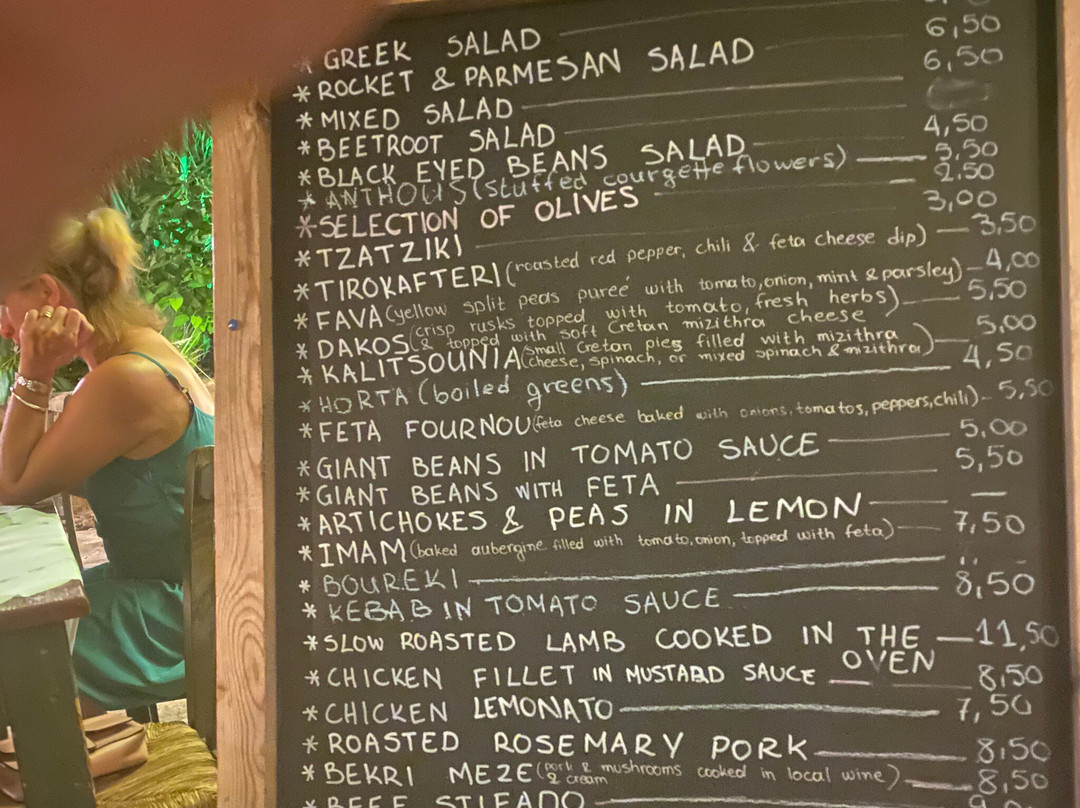 * GREEK SALAD 6,50
* ROCKET & PARMESAN SALAD 6,50
* MIXED SALAD
* BEETROOT SALAD 4,50
* BLACK EYED BEANS SALAD 5,50
* ANTHOUS (stuffed courgette flowers) 2,50
* SELECTION OF OLIVES 3,00
* TZATZIKI 3,50
* TIROKAFTERI (roasted red pepper, chili & feta cheese dip) 4,00
* FAVA (yellow split peas pureé with tomato, onion, mint & parsley) 5,50
* DAKOS (crisp rusks topped with tomato, fresh herbs)
& topped with soft Cretan mizithra cheese 5,00
* KALITSOUNIA (small Cretan pies filled with mizithra
cheese, spinach, or mixed spinach & mizithra) 4,50
* HORTA (boiled greens) 5,50
* FETA FOURNOU (feta cheese baked with onions, tomatos, peppers, chili)
* GIANT BEANS IN TOMATO SAUCE 5,00
* GIANT BEANS WITH FETA 5,50
* ARTICHOKES & PEAS IN LEMON —
* IMAM (baked aubergine filled with tomato, onion, topped with feta) 7,50
* BOUREKI
* KEBAB IN TOMATO SAUCE 8,50
* SLOW ROASTED LAMB COOKED IN THE OVEN 11,50
* CHICKEN FILLET IN MUSTARD SAUCE 8,50
* CHICKEN LEMONATO 7,50
* ROASTED ROSEMARY PORK 8,50
* BEKRI MEZE (pork & mushrooms cooked in local wine)
& cream 8,50
* BEEF STIFADO